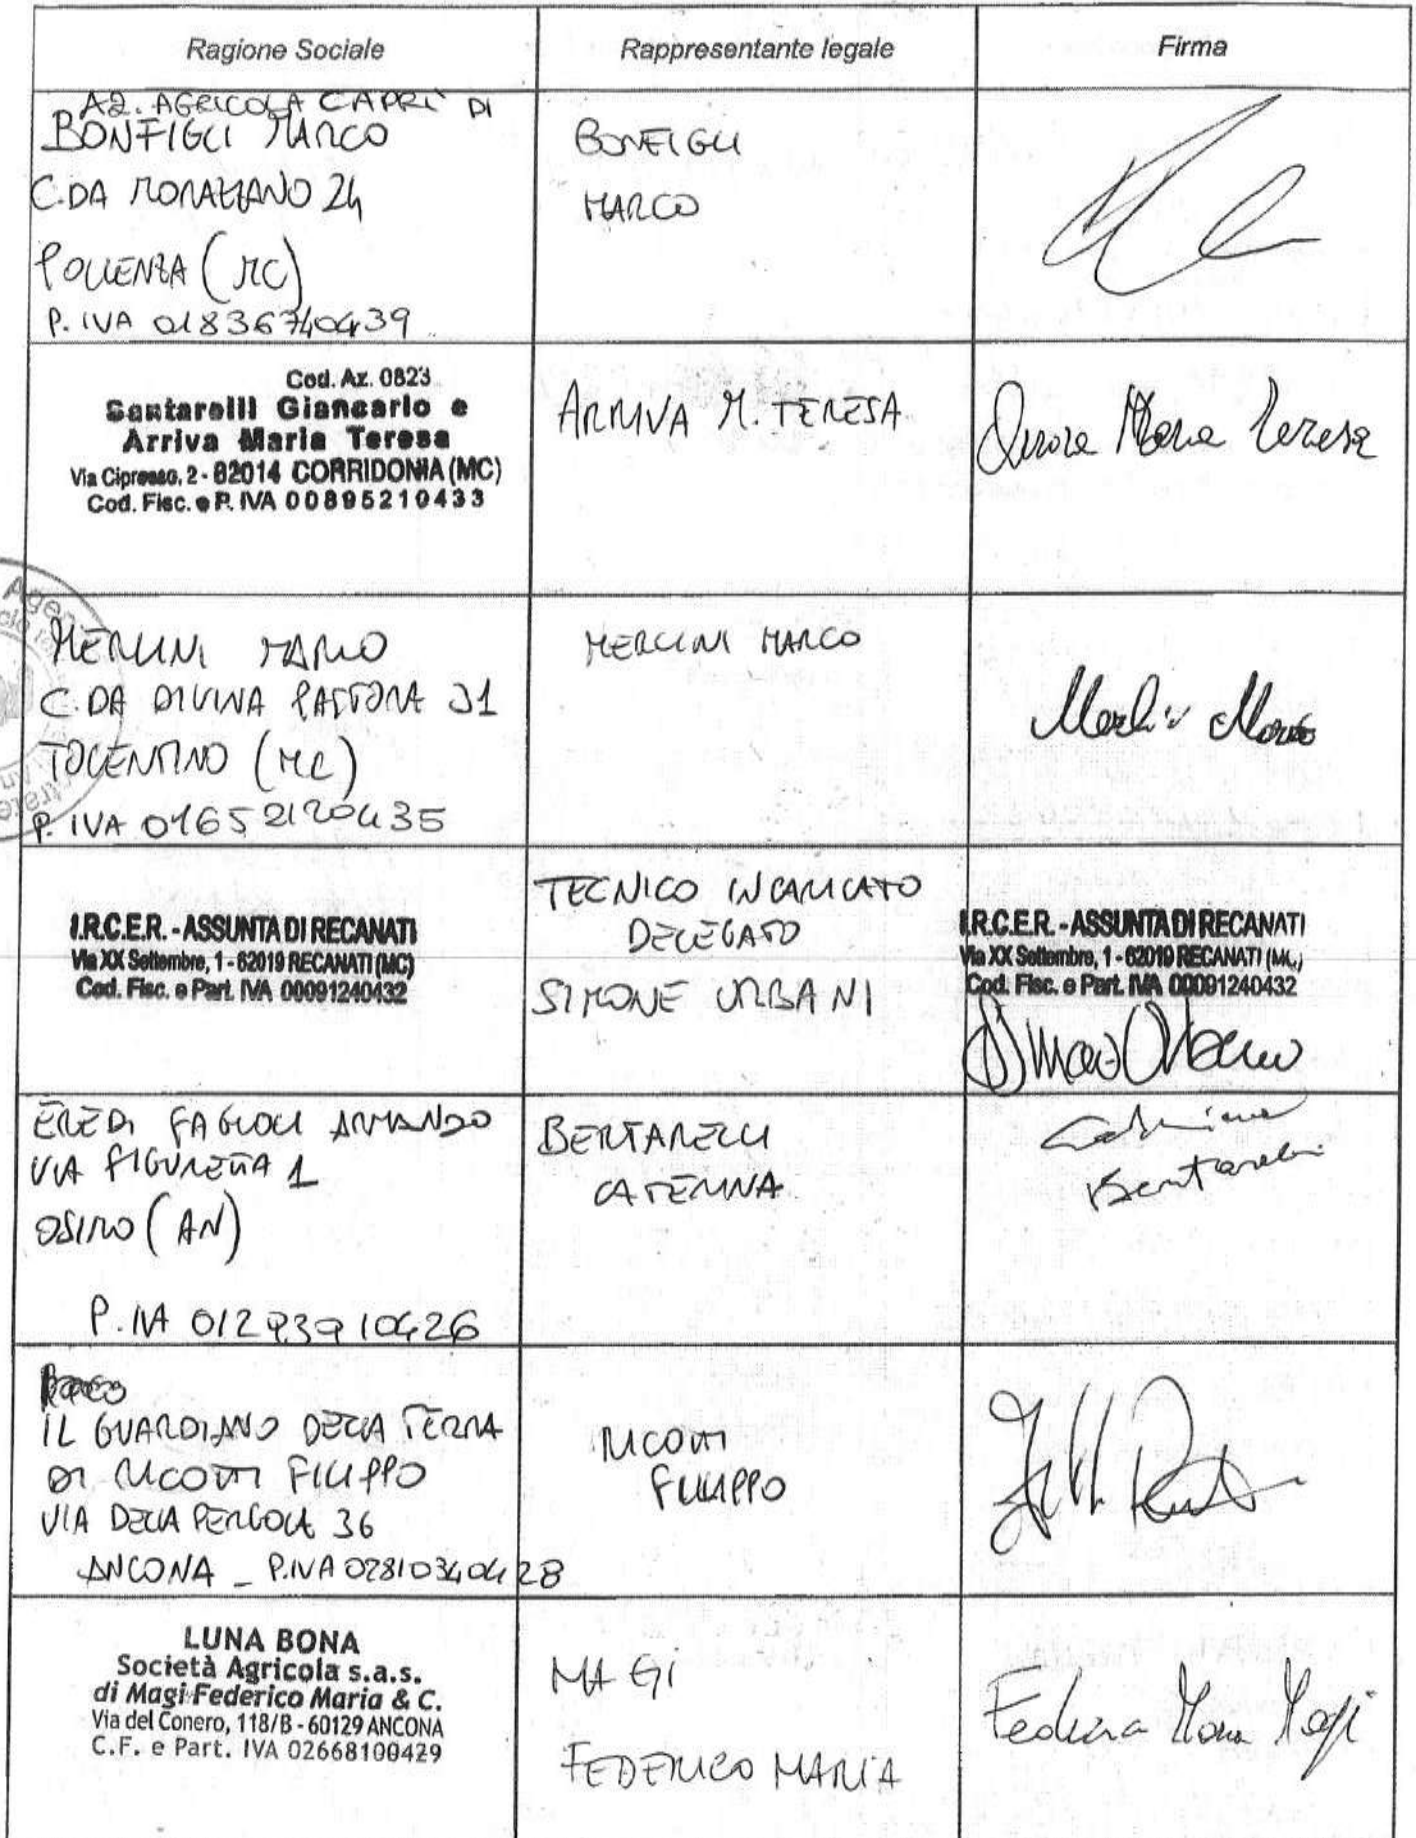 Ragione Sociale
Rappresentante legale
Firma
AZ. AGRICOLA CAPRÌ DI
BONFIGLI MARCO
C.DA MORAZZANO 24
POLLENZA (MC)
P. IVA 01836740439
BONFIGLI
MARCO
Cod. Az. 0823
Santarelli Giancarlo e
Arriva Maria Teresa
Via Cipresso, 2 - 62014 CORRIDONIA (MC)
Cod. Fisc. e P. IVA 00895210433
ARRIVA M. TERESA
Maria Teresa
MERLINI MARIO
C.DA DIVINA PASTORA 31
TOLENTINO (MC)
P. IVA 01652120435
MERLINI MARCO
I.R.C.E.R. - ASSUNTA DI RECANATI
Via XX Settembre, 1 - 62019 RECANATI (MC)
Cod. Fisc. e Part. IVA 00091240432
TECNICO INCARICATO
DELEGATO
SIMONE URBANI
I.R.C.E.R. - ASSUNTA DI RECANATI
Via XX Settembre, 1 - 62019 RECANATI (MC)
Cod. Fisc. e Part. IVA 00091240432
EREDI FAGIOLI ARMANDO
VIA FIGURETTA 1
OSIMO (AN)
P. IVA 01293910426
BERTARELLI
CATERINA
Bertarelli
IL GUARDIANO DELLA TERRA
DI RICOTTI FILIPPO
VIA DELLA PERGOLA 36
ANCONA - P.IVA 02810340428
RICOTTI
FILIPPO
LUNA BONA
Società Agricola s.a.s.
di Magi Federico Maria & C.
Via del Conero, 118/B - 60129 ANCONA
C.F. e Part. IVA 02668100429
MAGI
FEDERICO MARIA
Magi